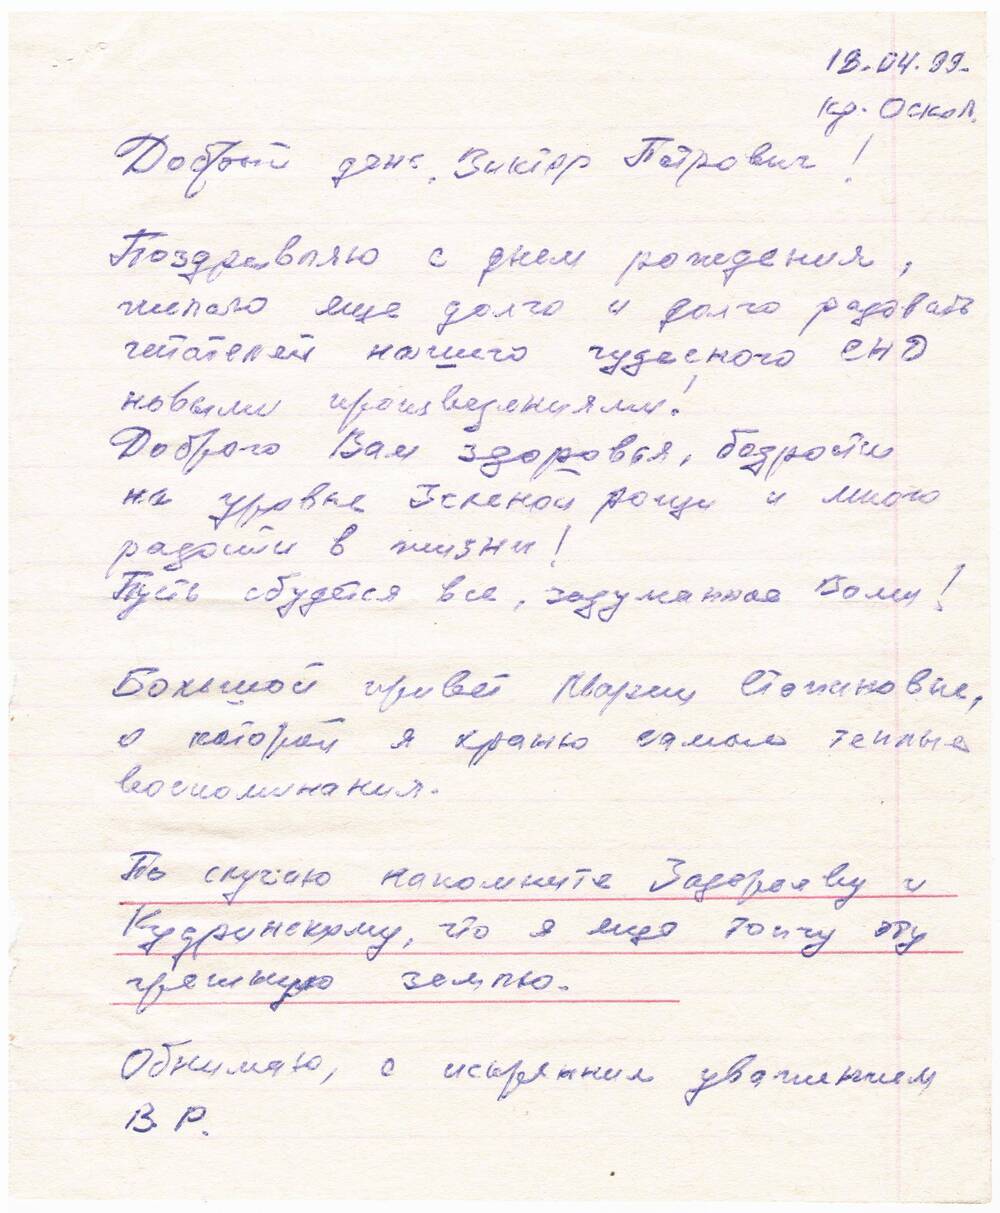 18.04.99.
кр. Оскол.
Добрый день, Виктор Петрович!
Поздравляю с днем рождения,
желаю еще долго и долго радовать
читателей нашего чудесного СНД
новыми произведениями!
Доброго Вам здоровья, бодрости
на уровне Зеленой рощи и много
радости в жизни!
Пусть сбудется все, задуманное Вами!
Большой привет Марии Степановне,
о которой я храню самые теплые
воспоминания.
По случаю напомните Задорееву и
Кудринскому, что я еще топчу эту
грешную землю.
Обнимаю, с искренним уважением
В.Р.